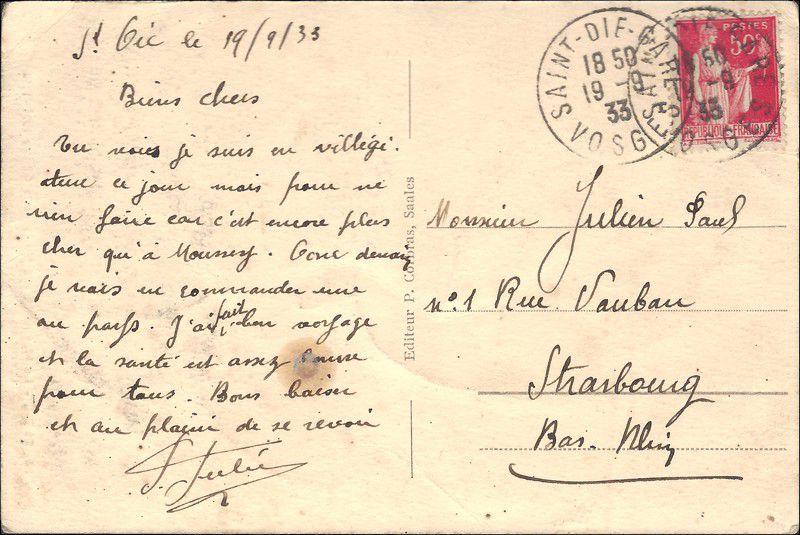 St Dié le 19/9/33
Biens chers
Tu vois je suis en villégi.
ature ce jour mais pour ne
rien faire car c'est encore plus
cher qu'à Moussey. Donc demain
je vais en commander une
au pays. J'ai fait bon voyage
et la santé est assez bonne
pour tous. Bons baiser
et au plaisir de se revoir
Editeur P. Corbras, Saales
SAINT-DIE-GARE
VOSGES
18 50
19 - 9
33
POSTES
50c
REPUBLIQUE FRANÇAISE
Monsieur Julien Paul
n°.1 Rue Vauban
Strasbourg
Bas. Rhin